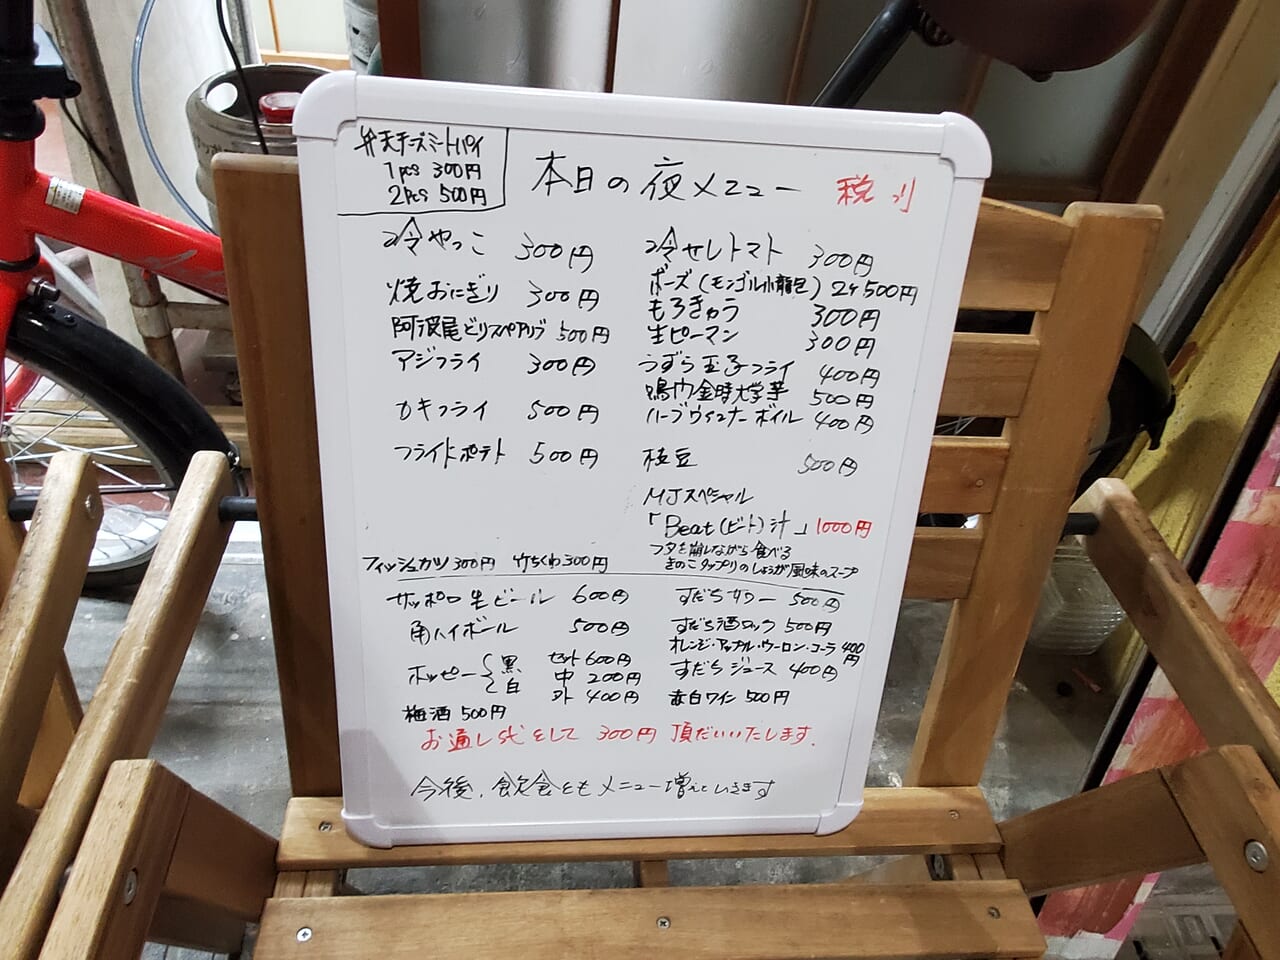 弁天チーズミートパイ
1pcs 300円
2pcs 500円
本日の夜メニュー
冷やっこ 300円
焼おにぎり 300円
阿波尾どりスペアリブ 500円
アジフライ 300円
カキフライ 500円
フライドポテト 500円
冷せしトマト 300円
ボーズ(モンゴル小龍包) 2ケ500円
もろきゅう 300円
生ピーマン 300円
うずら玉子フライ 400円
鳴門金時大学芋 500円
ハーブウィンナーボイル 400円
枝豆 500円
MJスペシャル
「Beat(ビート)汁」1000円
フタを崩しながら食べる
きのこタップリのしょうが風味のスープ
フィッシュカツ 300円 竹ちくわ300円
サッポロ生ビール 600円
角ハイボール 500円
ホッピー 黒 白
セット 600円
中 200円
外 400円
梅酒 500円
すだちサワー 500円
すだち酒ロック 500円
オレンジ・アップル・ウーロン・コーラ 400円
すだちジュース 400円
赤白ワイン 500円
お通し代として 300円 頂だいいたします。
今後、飲食ともメニュー増えていきます